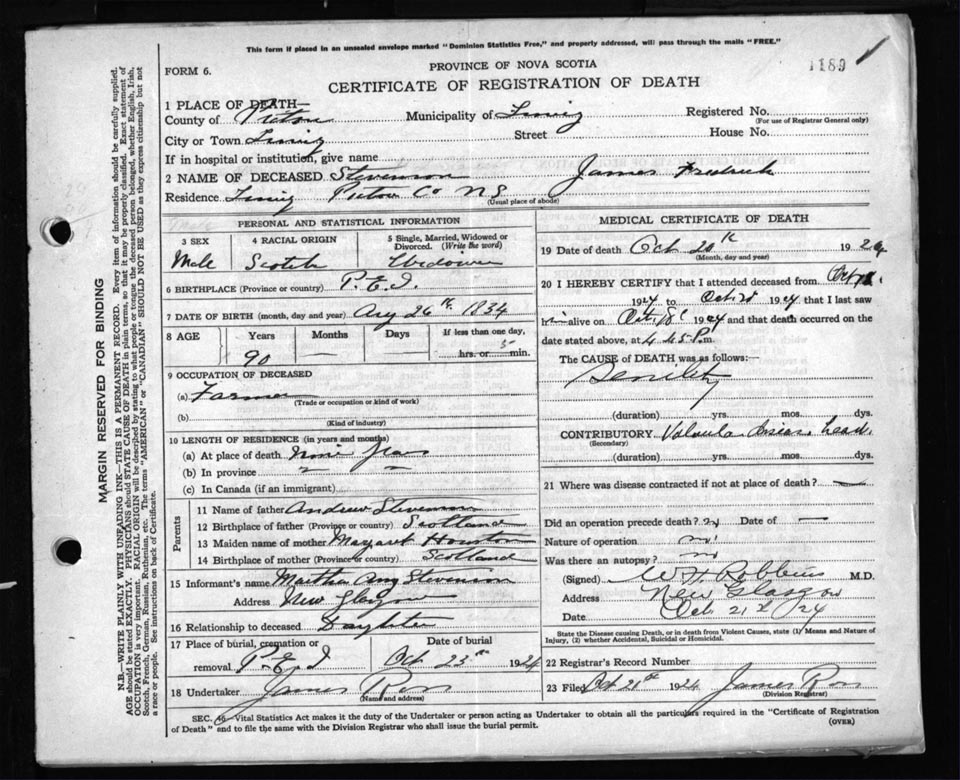 This form if placed in an unsealed envelope marked "Dominion Statistics Free," and properly addressed, will pass through the mails "FREE."
1189
FORM 6.
PROVINCE OF NOVA SCOTIA
CERTIFICATE OF REGISTRATION OF DEATH
1 PLACE OF DEATH—
County of Pictou Municipality of Registered No.
(For use of Registrar General only)
City or Town Street House No.
If in hospital or institution, give name
2 NAME OF DECEASED Stevenson James Fredrick
Residence Pictou Co N S
(Usual place of abode)
PERSONAL AND STATISTICAL INFORMATION
3 SEX 4 RACIAL ORIGIN 5 Single, Married, Widowed or Divorced. (Write the word)
Male Scotch Widower
6 BIRTHPLACE (Province or country) P.E.I.
7 DATE OF BIRTH (month, day and year) Aug 26th 1834
8 AGE Years Months Days If less than one day,
90 — hrs. or 5 min.
9 OCCUPATION OF DECEASED
(a) Farmer
(Trade or occupation or kind of work)
(b)
(Kind of industry)
10 LENGTH OF RESIDENCE (in years and months)
(a) At place of death Nine years
(b) In province
(c) In Canada (if an immigrant)
Parents
11 Name of father Andrew Stevenson
12 Birthplace of father (Province or country) Scotland
13 Maiden name of mother Margaret Houston
14 Birthplace of mother (Province or country) Scotland
15 Informant's name Martha Ann Stevenson
Address New Glasgow
16 Relationship to deceased Daughter
17 Place of burial, cremation or removal. Date of burial
P.E.I Oct 23rd 1924
18 Undertaker James Ross
(Name and address)
MEDICAL CERTIFICATE OF DEATH
19 Date of death Oct 20th 1924
(Month, day and year)
20 I HEREBY CERTIFY that I attended deceased from Oct
1924 to Oct 20 1924 that I last saw
him alive on Oct 18 1924 and that death occurred on the
date stated above, at 4.45 P.m.
The CAUSE OF DEATH was as follows:—
Senility
(duration) yrs. mos. dys.
CONTRIBUTORY Valvular disease heart
(Secondary)
(duration) yrs. mos. dys.
21 Where was disease contracted if not at place of death? —
Did an operation precede death? Date of —
Nature of operation no
Was there an autopsy? no
(Signed) W H Robbins M.D.
Address New Glasgow
Date Oct 21st 24
State the Disease causing Death, or in death from Violent Causes, state (1) Means and Nature of Injury, (2) whether Accidental, Suicidal or Homicidal.
22 Registrar's Record Number
23 Filed Oct 21st 1924 James Ross
(Division Registrar)
SEC. 46—Vital Statistics Act makes it the duty of the Undertaker or person acting as Undertaker to obtain all the particulars required in the "Certificate of Registration
of Death" and to file the same with the Division Registrar who shall issue the burial permit.
(OVER)
MARGIN RESERVED FOR BINDING
N.B.—WRITE PLAINLY WITH UNFADING INK—THIS IS A PERMANENT RECORD. Every item of information should be carefully supplied.
AGE should be stated EXACTLY. PHYSICIANS should STATE CAUSE OF DEATH in plain terms, so that it may be properly classified. Exact statement of
OCCUPATION is very important. RACIAL ORIGIN will be described by stating to what people or tongue the deceased person belonged, whether English, Irish,
Scotch, French, German, Russian, Ruthenian, etc. The terms "AMERICAN" or "CANADIAN" SHOULD NOT BE USED as they express citizenship but not
a race or people. See instructions on back of Certificate.